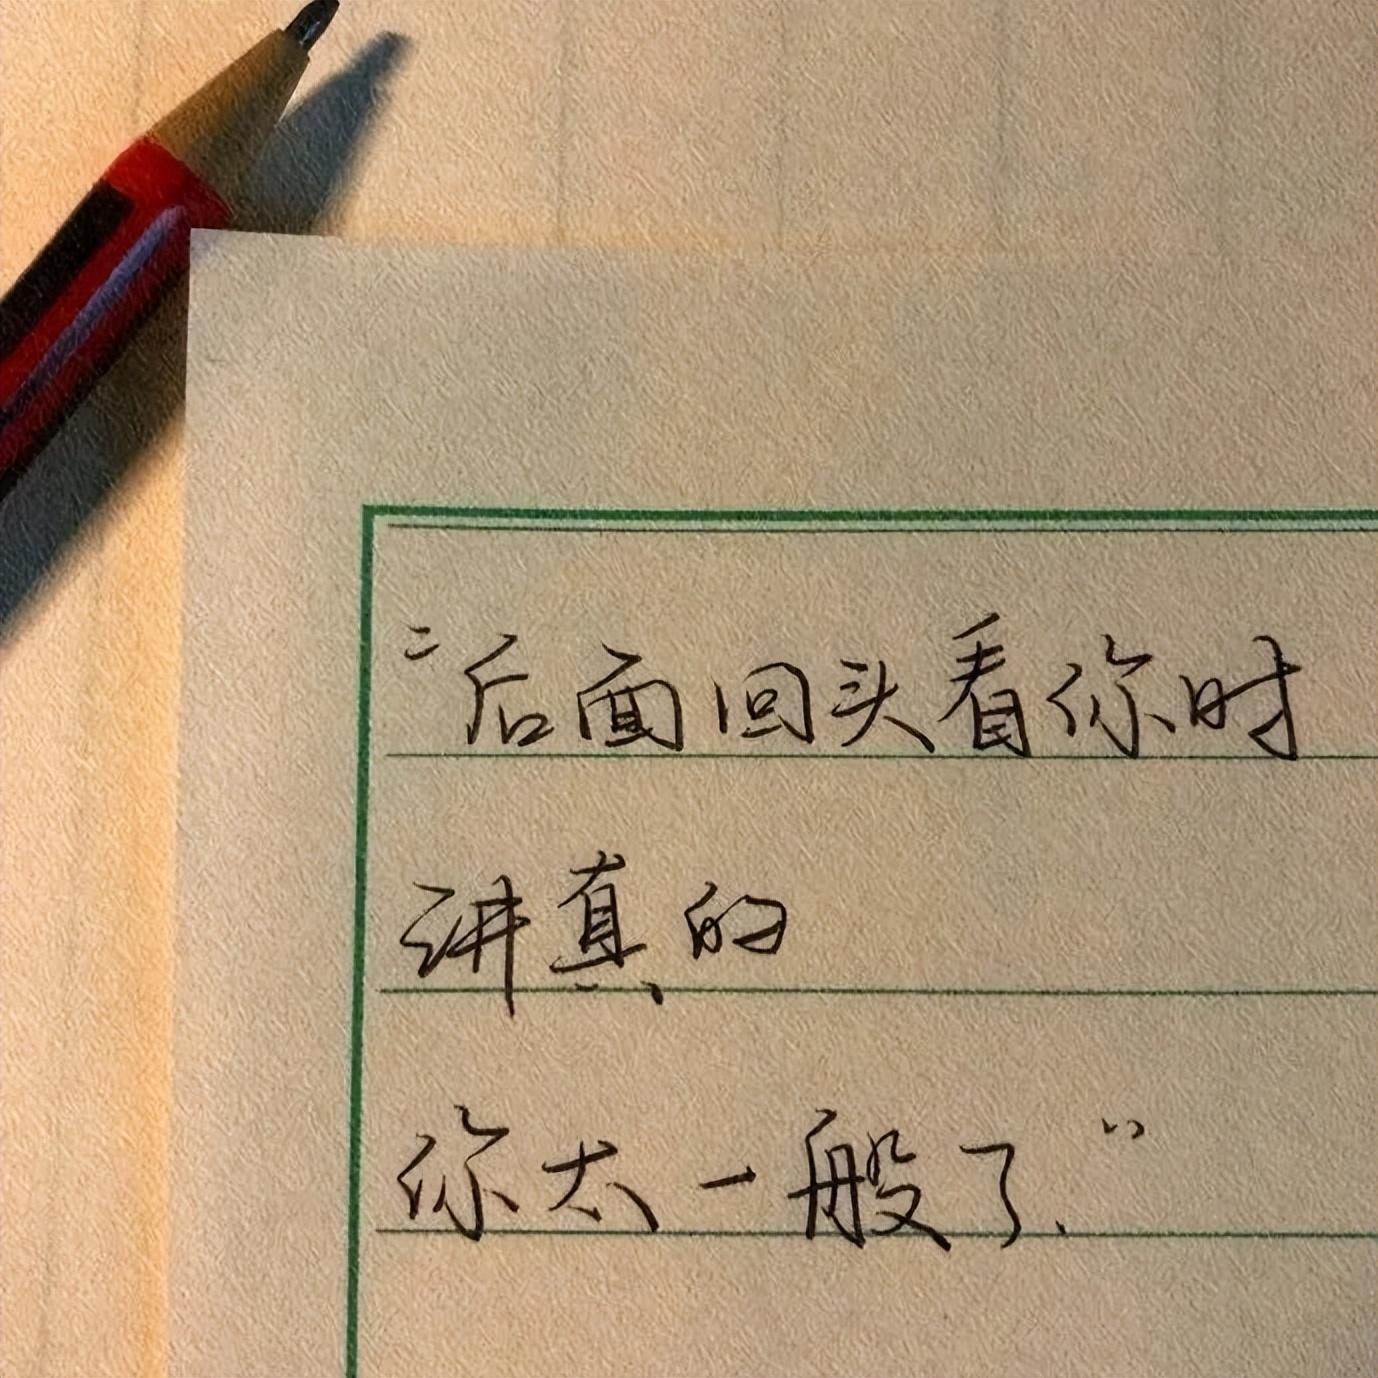 “后面回头看你时
讲真的
你太一般了.”